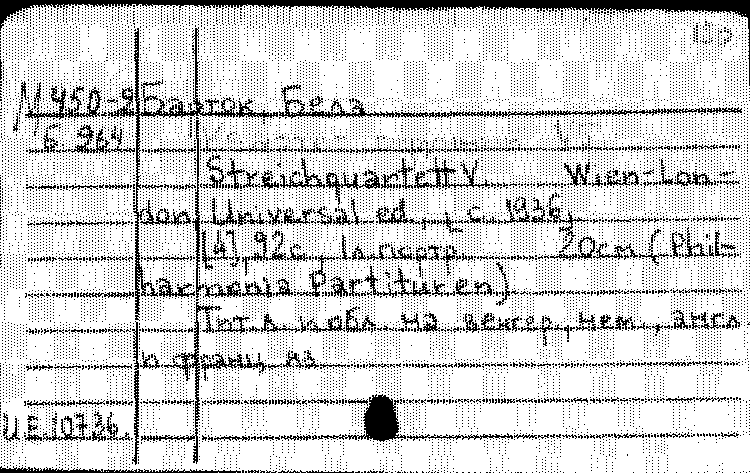 М 450-9 Барток, Бела
Б 964
Streichquartett V. Wien-Lon-
don, Universal ed., c. 1936,
[4], 92 с., 1 л. портр. 20 см (Phil-
harmonia Partituren)
Тит. л. и обл. на венгер., нем., англ
и франц. яз.
UE 10736.